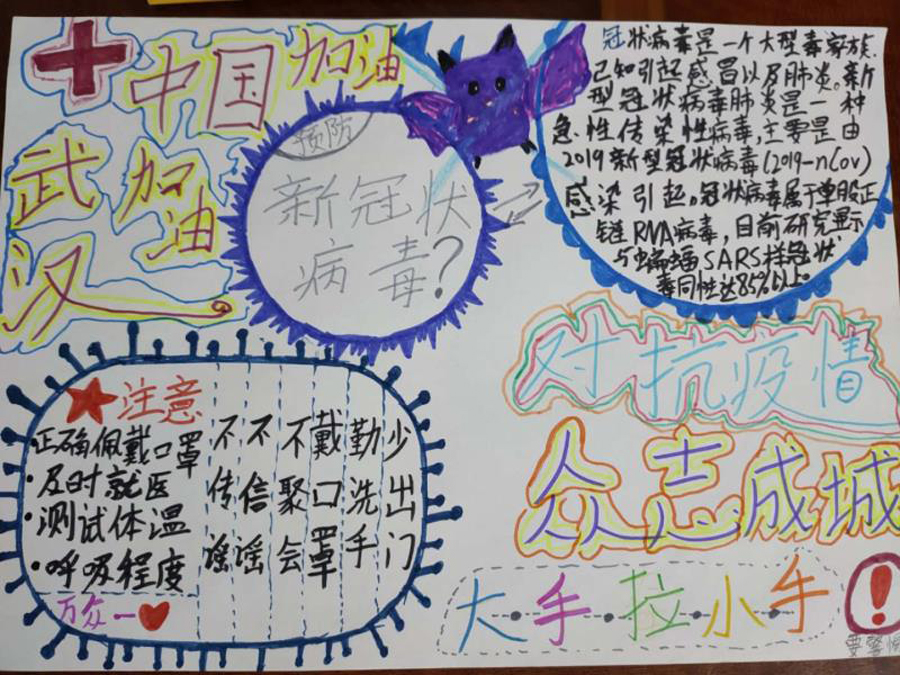 中国加油
武汉
加油
预防
新冠状
病毒?
冠状病毒是一个大型毒家族.
已知引起感冒以及肺炎。新
型冠状病毒肺炎是一种
急性传染性病毒,主要是由
2019新型冠状病毒(2019-nCov)
感染引起。冠状病毒属于单股正
链RNA病毒,目前研究显示
与蝙蝠SARS样冠状
毒同性达85%以上。
对抗疫情
众志成城
注意
正确佩戴口罩
·及时就医
·测试体温
·呼吸程度
万众一
不传谣
不信谣
不聚会
戴口罩
勤洗手
少出门
大·手·拉·小·手
!
要警惕